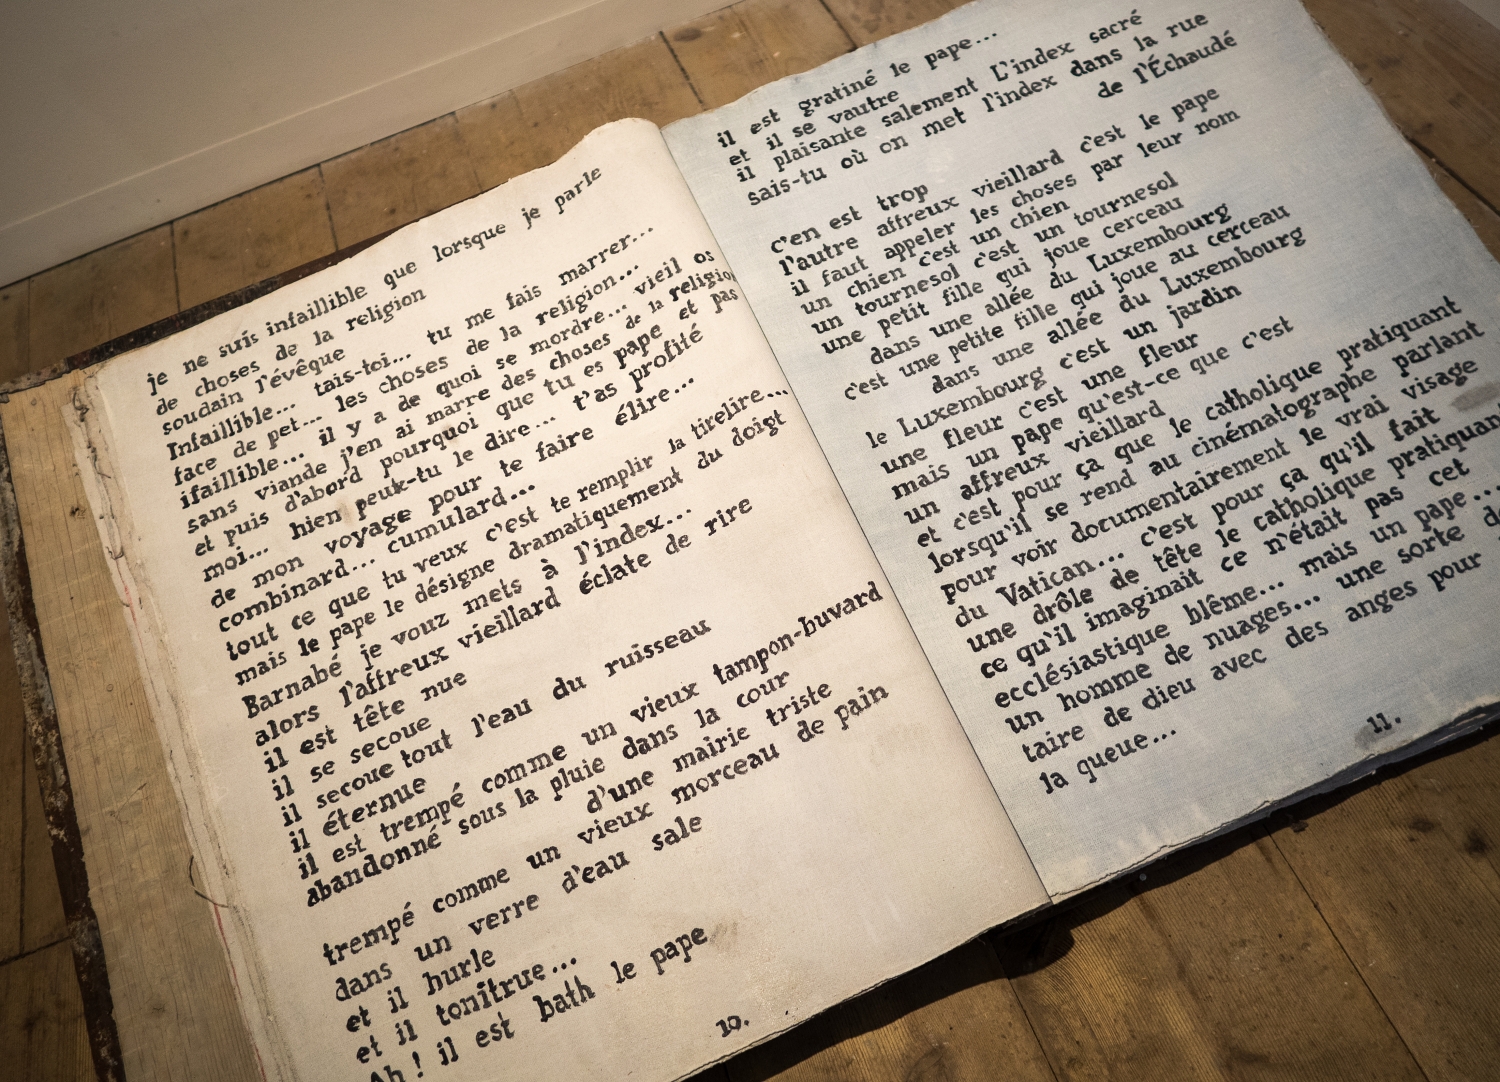 je ne suis infaillible que lorsque je parle
de choses de la religion
soudain l'évêque
Infaillible... tais-toi... tu me fais marrer...
face de pet... les choses de la religion...
ifaillible... il y a de quoi se mordre... vieil os
sans viande j'en ai marre des choses de la religion
et puis d'abord pourquoi que tu es pape et pas
moi... hien peuk-tu le dire... t'as profité
de mon voyage pour te faire élire...
combinard... cumulard...
tout ce que tu veux c'est te remplir la tirelire...
mais le pape le désigne dramatiquement du doigt
Barnabé je vouz mets à l'index...
alors l'affreux vieillard éclate de rire
il est tête nue
il se secoue
il secoue tout l'eau du ruisseau
il éternue
il est trempé comme un vieux tampon-buvard
abandonné sous la pluie dans la cour
d'une mairie triste
trempé comme un vieux morceau de pain
dans un verre d'eau sale
et il hurle
et il tonîtrue...
Ah ! il est bath le pape
10.
il est gratiné le pape...
et il se vautre
il plaisante salement L'index sacré
sais-tu où on met l'index dans la rue
de l'Échaudé
c'en est trop
l'autre affreux vieillard c'est le pape
il faut appeler les choses par leur nom
un chien c'est un chien
un tournesol c'est un tournesol
une petit fille qui joue cerceau
dans une allée du Luxembourg
c'est une petite fille qui joue au cerceau
dans une allée du Luxembourg
le Luxembourg c'est un jardin
une fleur c'est une fleur
mais un pape qu'est-ce que c'est
un affreux vieillard
et c'est pour ça que le catholique pratiquant
lorsqu'il se rend au cinématographe parlant
pour voir documentairement le vrai visage
du Vatican... c'est pour ça qu'il fait
une drôle de tête le catholique pratiquant
ce qu'il imaginait ce n'était pas cet
ecclésiastique blême... mais un pape...
un homme de nuages... une sorte de
taire de dieu avec des anges pour
la queue...
11.